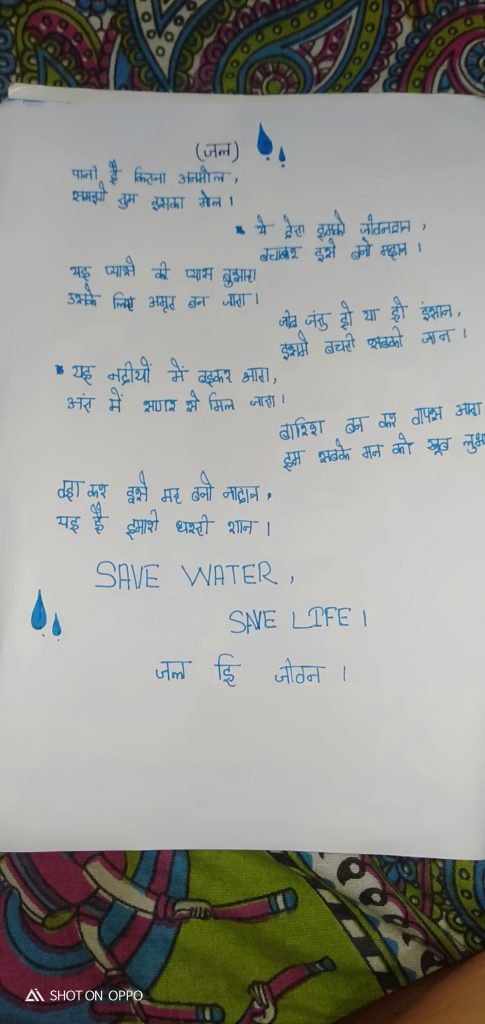 (जल)
पानी है कितना अनमोल,
समझो तुम इसका मोल।
ये देता हमको जीवनदान,
बचाकर इसे बनो महान।
यह प्यासे की प्यास बुझाता
उसके लिए अमृत बन जाता।
जीव जंतु हो या हो इंसान,
इससे बचती सबकी जान।
यह नदीयों में बहकर आता,
अंत में सागर से मिल जाता।
बारिश बन कर वापस आता
हम सबके मन को खूब
वहा कर इसे मत बनो नादान,
यह है हमारी धरती शान।
SAVE WATER,
SAVE LIFE।
जल हि जीवन।
SHOT ON OPPO